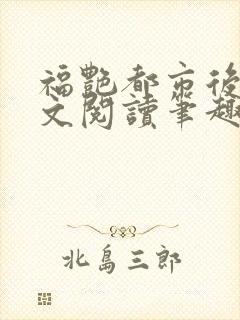 福艷都市後
文閱讀筆趣
北島三郎